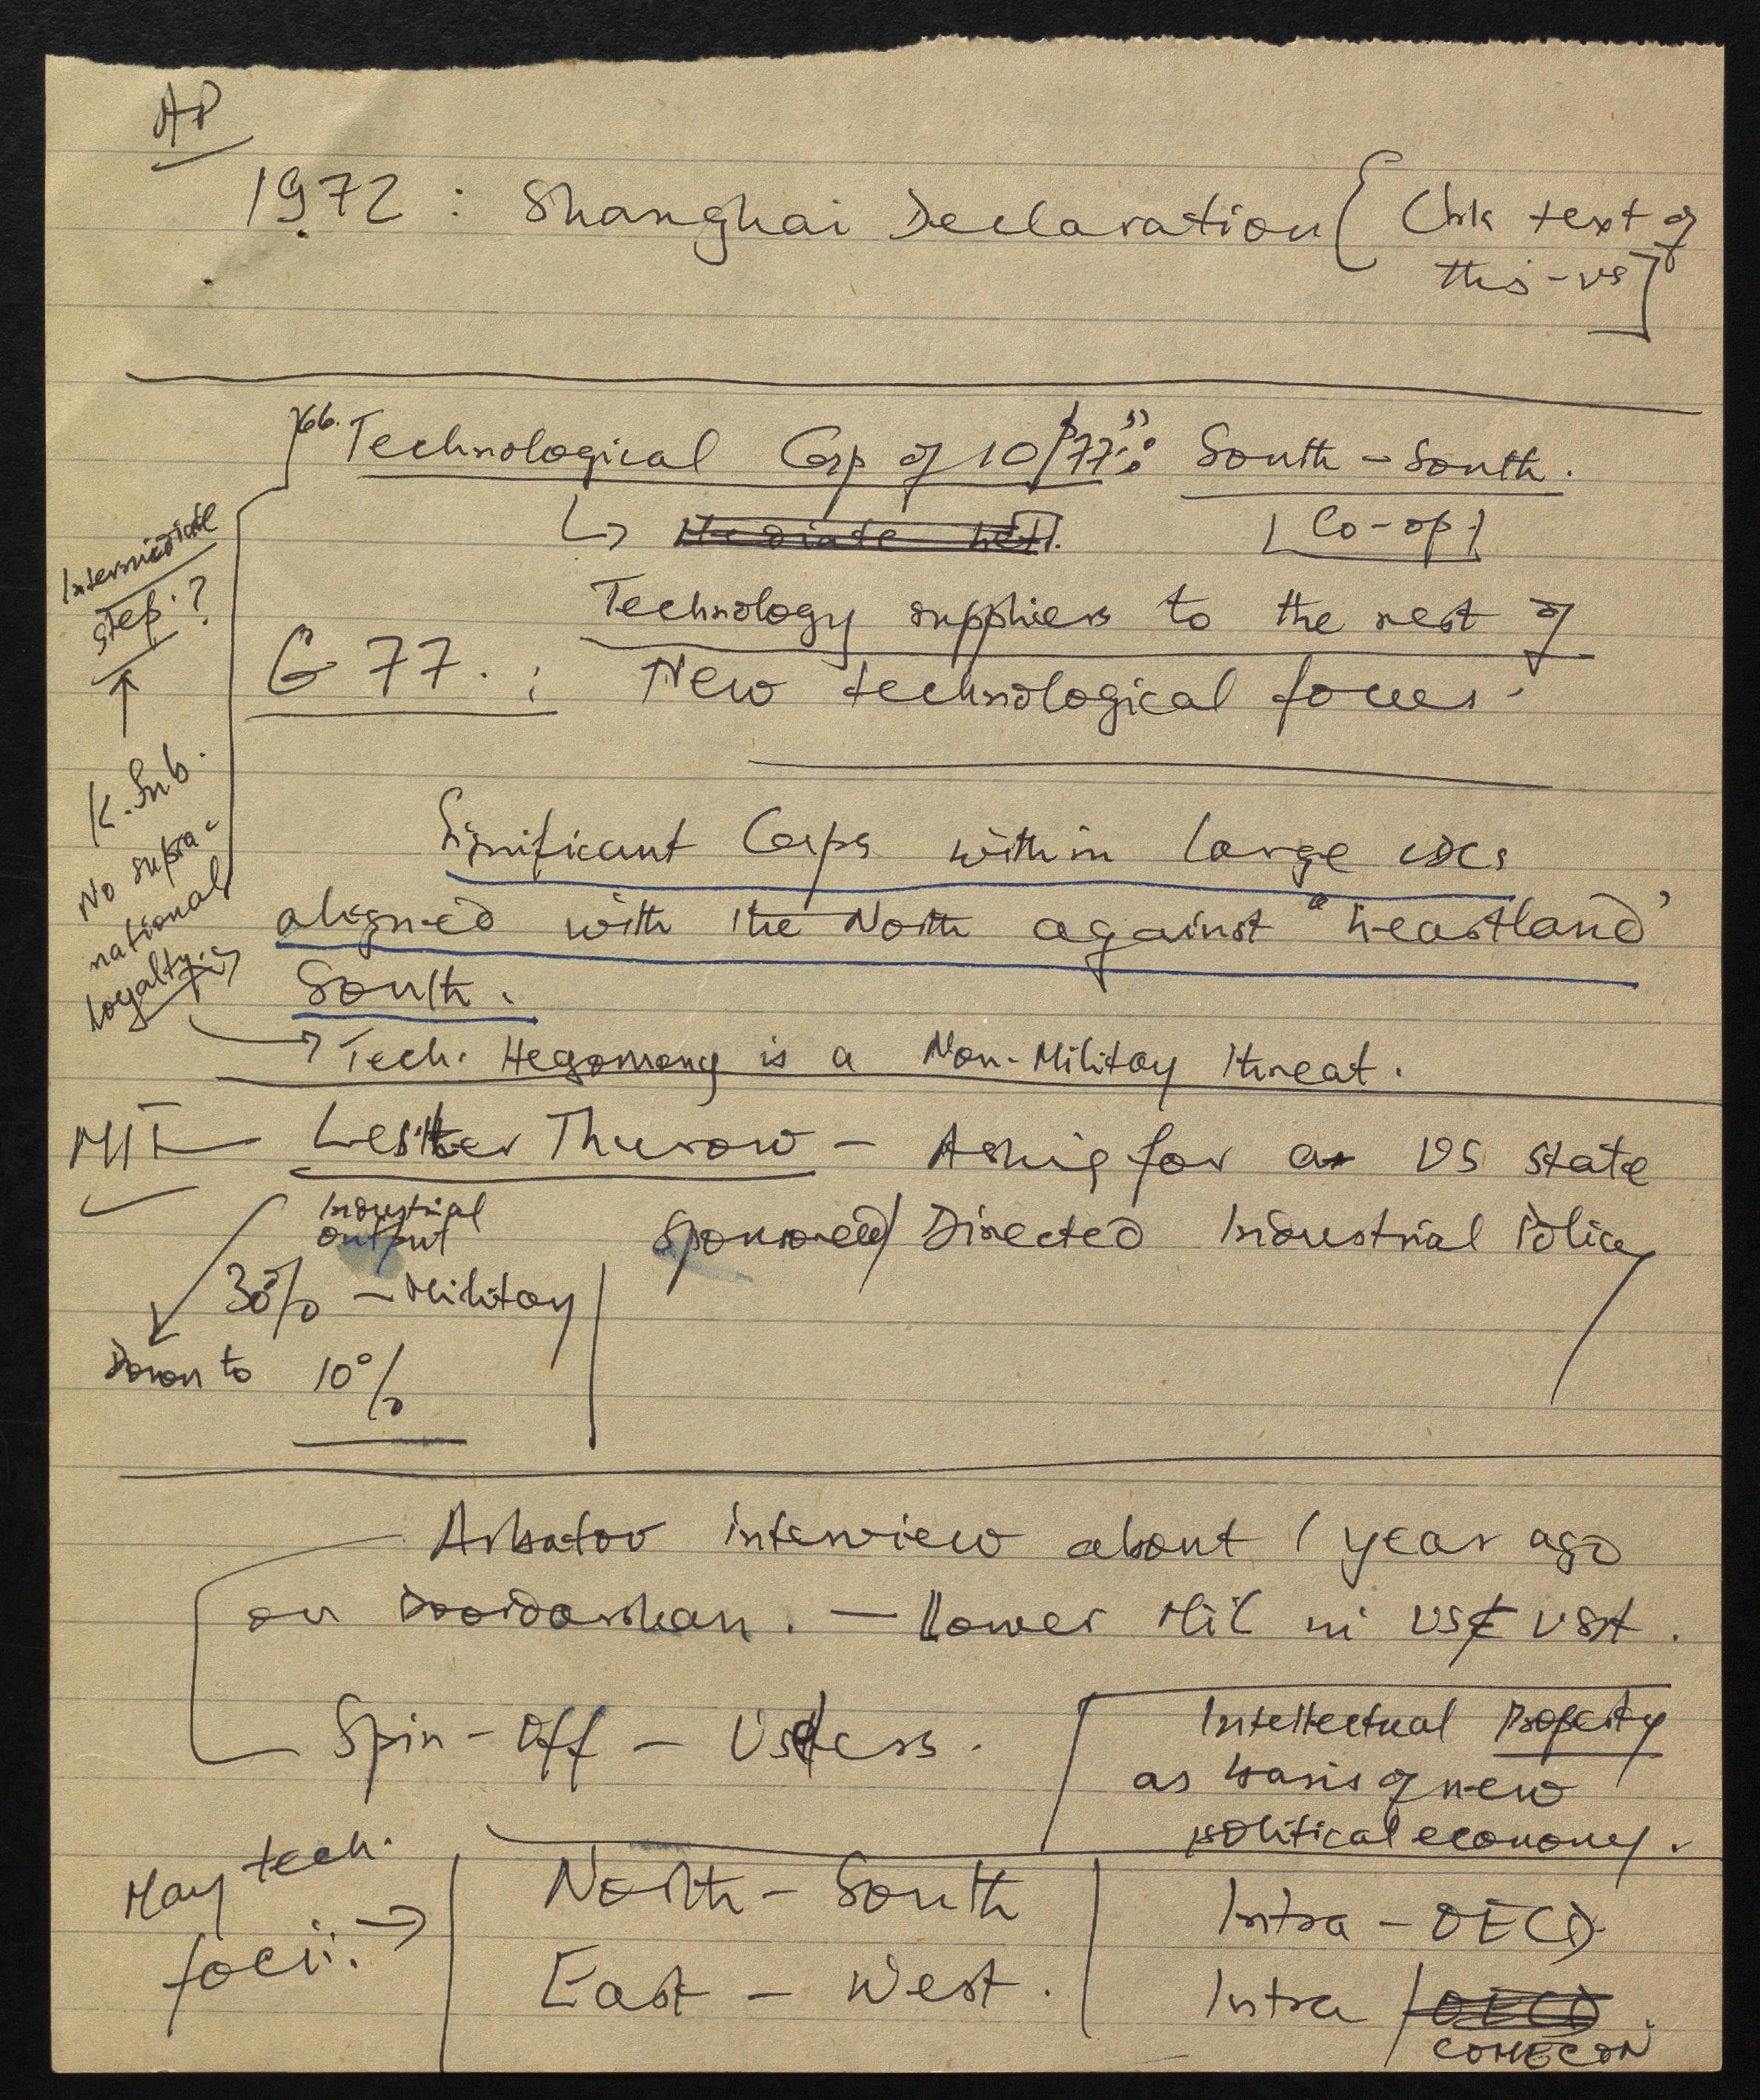 AP
1972 : Shanghai Declaration { Chk text of
this - vs ]
"Technological Corp of 10/77": South - South.
[Co-op]
Intermediate
step ?
Technology suppliers to the rest of
G 77. : New technological forces.
K. Sub.
No supra-
national
loyalty.
Significant Corps within large LDCs
aligned with the North against "heartland"
South.
Tech. Hegomony is a Non-Military threat.
MIT - Lester Thurow - Asking for a US state
sponsored/Directed Industrial Policy
Industrial
output
30% - Military
Down to 10%
Arbatov interview about 1 year ago
on Doordarshan. - Lower Mil in US &
Spin-Off - Useless.
Intellectual Property
as basis of new
political economy.
May tech.
foci: →
North - South
East - West.
Intra - OECD
Intra
COMECON